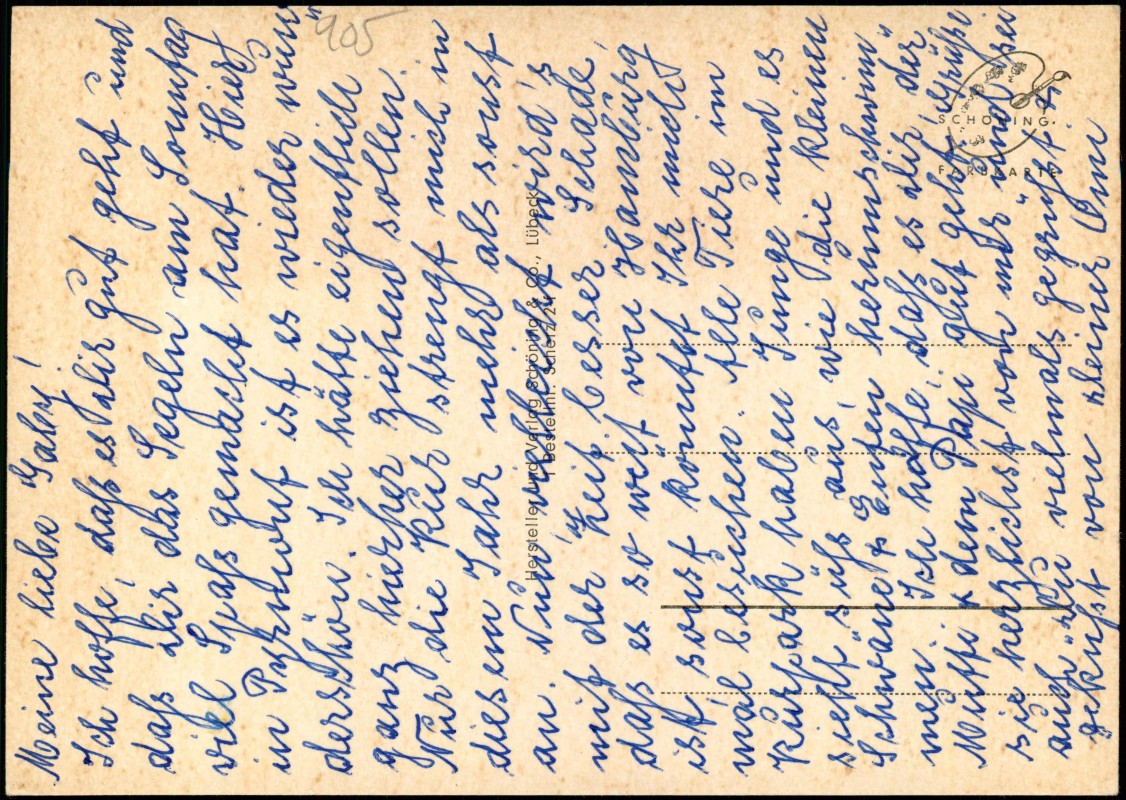 905
Meine liebe Gaby!
Ich hoffe, daß es Dir gut geht und
daß Dir das Segeln am Sonntag
viel Spaß gemacht hat. Hier
in Pyrmont ist es wieder wun"
derschön. Ich hätte eigentlich
ganz hierher ziehen sollen.
Nur die Kur strengt mich in
diesem Jahr mehr als sonst
an. Nun vielleicht wird's
mit der "Zeit besser. Schade,
daß es so weit von Hamburg
ist sonst könntet Ihr mich
mal besuchen. Alle Tiere im
Kurpark haben Junge und es
sieht süß aus, wie die kleinen
Schwäne & Enten herumschwim"
men. Ich hoffe, daß es Dir, der
Mutti & dem Papi gut geht, Grüße
sie herzlichst von mir und sei
auch Du vielmals gegrüßt &
geküßt von Deiner Omi
Hersteller und Verlag Schöning & Co., Lübeck
Bestellnr. Scherz 24
SCHÖNING
FARBKARTE